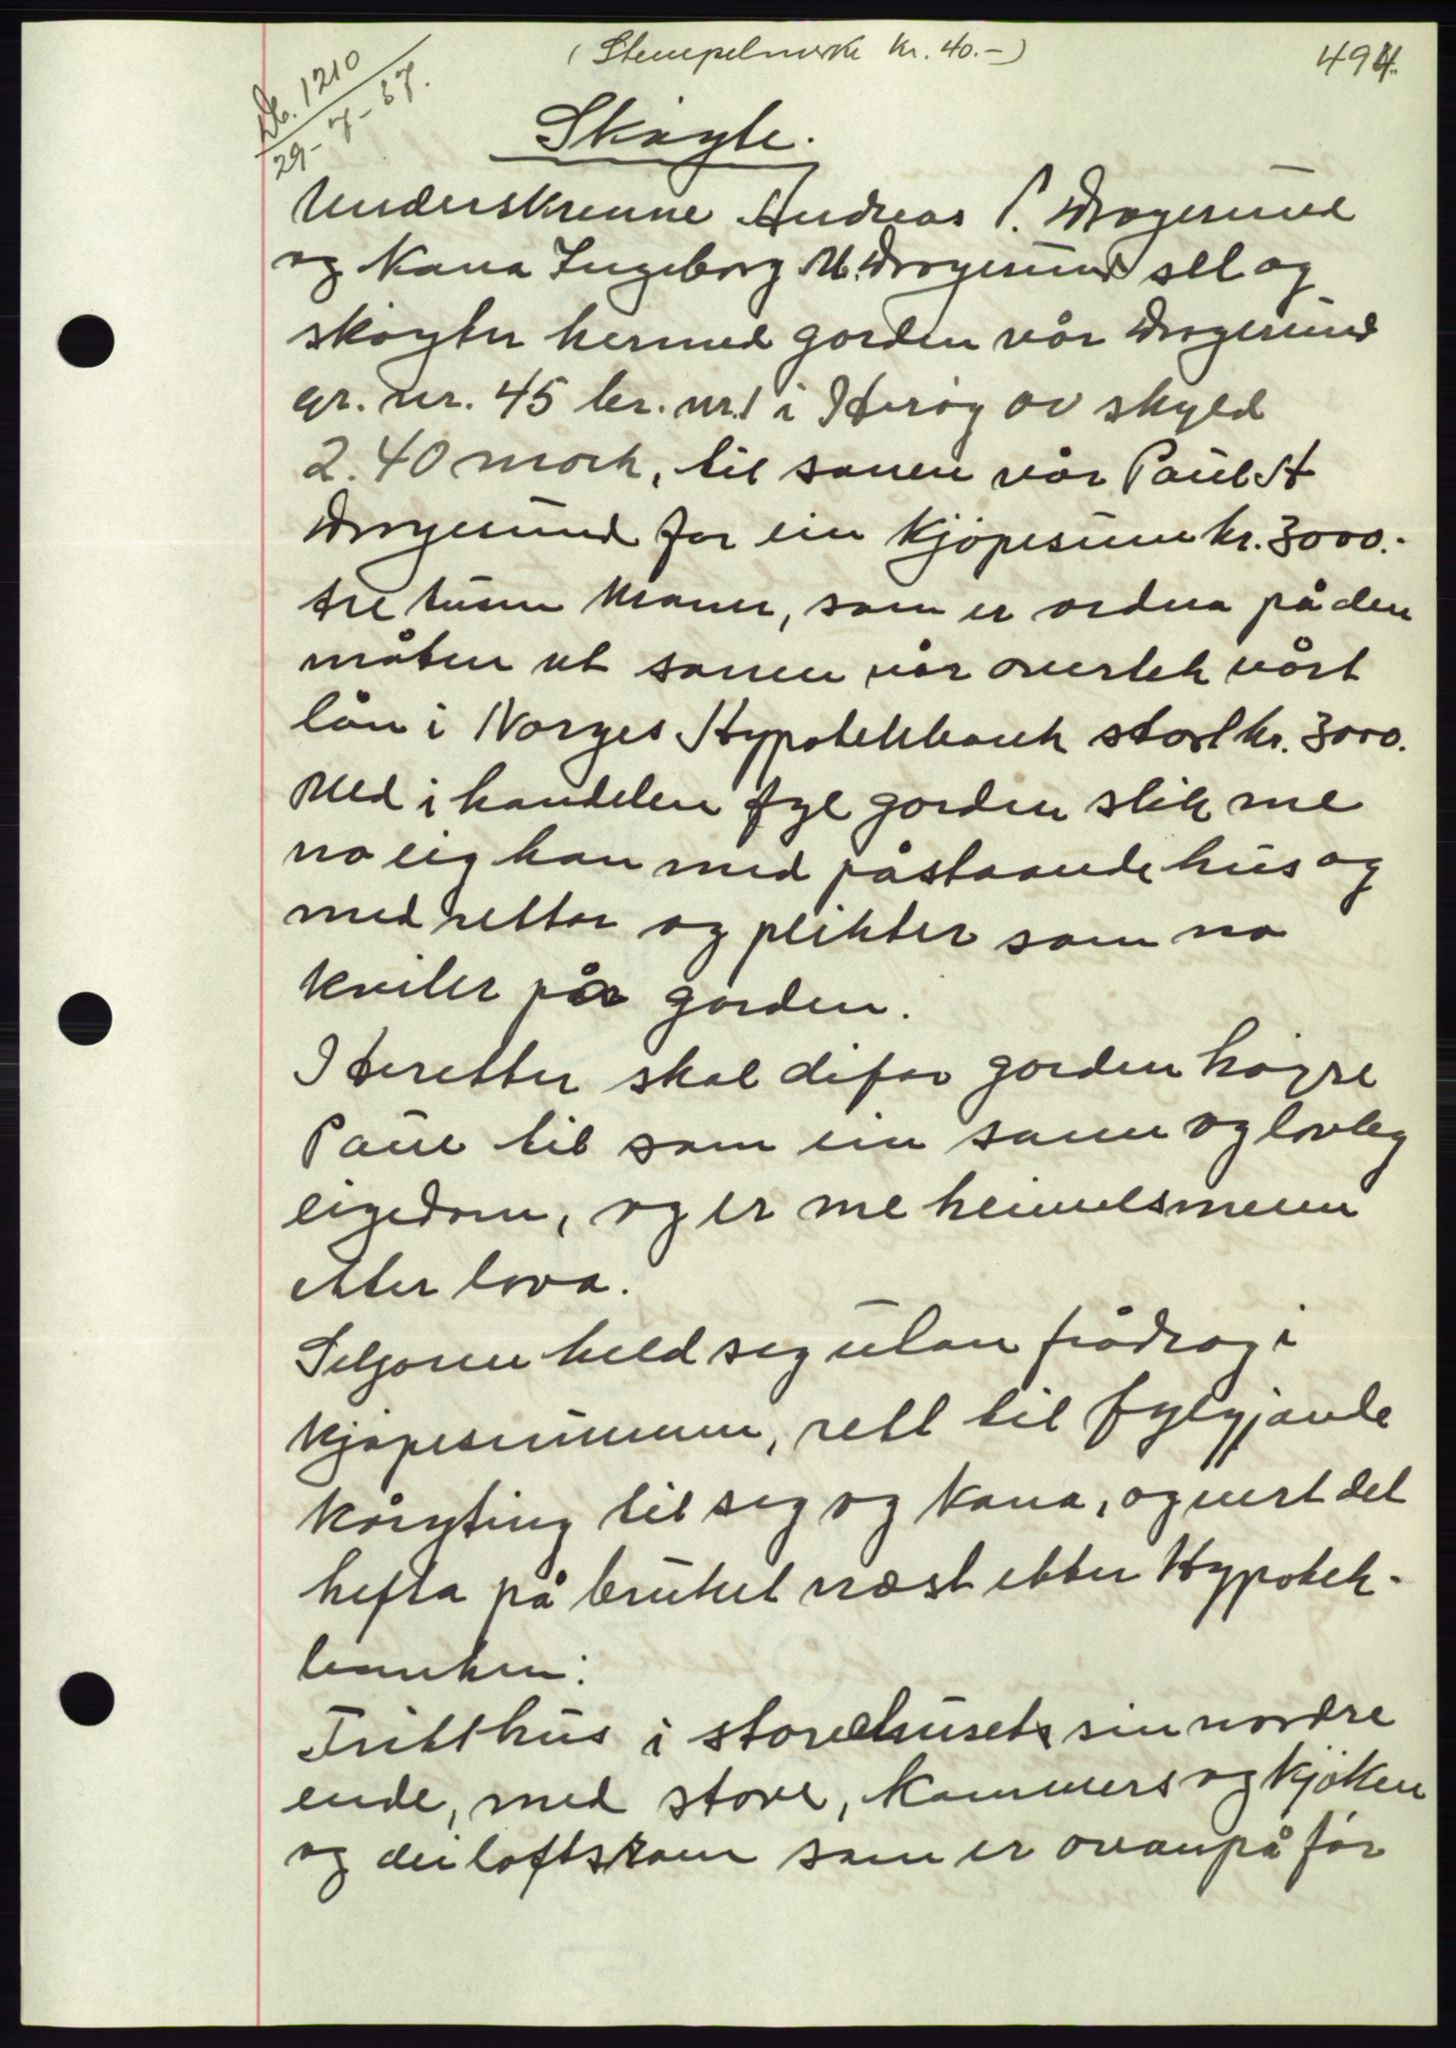 (Stempelmerke kr. 40.-)
494.
Db. 1210
29-7-37.
Skøyte.
Underskrevne Andreas P. Dragesund
og kona Ingeborg M. Dragesund sel og
skøyter hermed garden vår Dragesund
gr. nr. 45 br. nr. 1 i Herøy av skyld
2.40 mark, til sonen vår Paul A
Dragesund for ein kjøpesum kr. 3000.-
tre tusen kroner, som er ordna på den
måten at sonen vår overtek vårt
lån i Norges Hypotekbank stort kr. 3000.
Med i handelen fyl garden slik me
no eig han med påstaande hus og
med rettar og plikter som no
kviler på garden.
Heretter skal difor garden høyre
Paul til som ein sann og lovleg
eigedom, og er me heimelsmenn
etter lova.
Seljaren held seg utan frådrag i
kjøpesummen, rett til fylgjande
kårytïng til seg og kona, og vert det
hefta på bruket næst etter Hypotek-
banken:
Fritt hus i storehuset sin nordre
ende, med stove, kammers og kjøken
og dei loftsrom som er ovanpå før